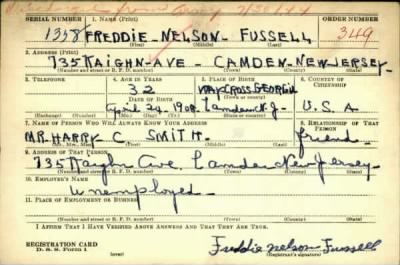 Discharged from Army 7/30/4
SERIAL NUMBER 1. NAME (Print) ORDER NUMBER
1358 FREDDIE - NELSON - FUSSELL 349
(First) (Middle) (Last)
2. ADDRESS (Print)
735 KAIGHN-AVE - CAMDEN-NEW JERSEY-
(Number and street or R. F. D. number) (Town) (County) (State)
3. TELEPHONE 4. AGE IN YEARS 5. PLACE OF BIRTH 6. COUNTRY OF CITIZENSHIP
32 WAYCROSS GEORGIA
DATE OF BIRTH (Town or county)
April 24 1908 Camden N.J. U.S.A
(Exchange) (Number) (Mo.) (Day) (Yr.) (State or country)
7. NAME OF PERSON WHO WILL ALWAYS KNOW YOUR ADDRESS 8. RELATIONSHIP OF THAT PERSON
MR. HARRY C SMITH. friend.
(Mr., Mrs., Miss) (First) (Middle) (Last)
9. ADDRESS OF THAT PERSON
735 Kaighn Ave. Camden New Jersey-
(Number and street or R. F. D. number) (Town) (County) (State)
10. EMPLOYER'S NAME
Unemployed-
11. PLACE OF EMPLOYMENT OR BUSINESS
(Number and street or R. F. D. number) (Town) (County) (State)
I AFFIRM THAT I HAVE VERIFIED ABOVE ANSWERS AND THAT THEY ARE TRUE.
REGISTRATION CARD
D. S. S. Form 1
Freddie Nelson Fussell
(Registrant's signature)